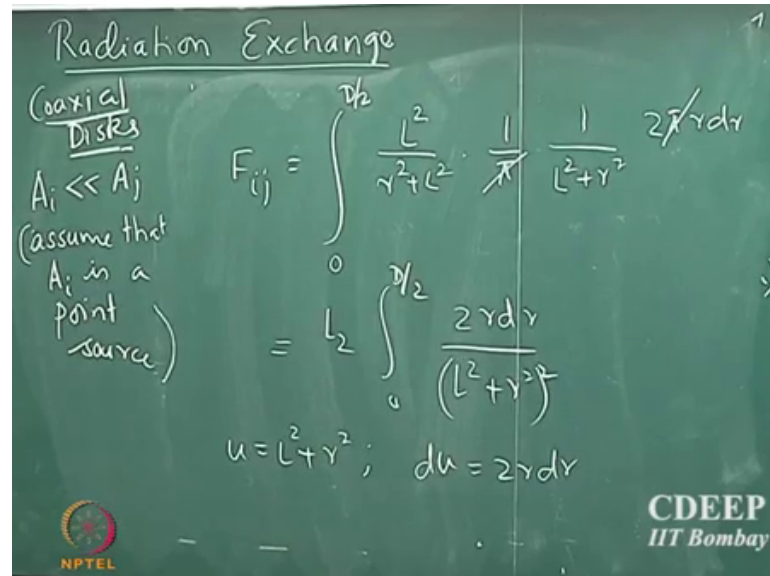 Radiation Exchange
Coaxial
Disks
A_i << A_j
(assume that
A_i is a
point
source)
F_ij = ∫_0^{D/2} L²/(r²+L²) · 1/π · 1/(L²+r²) 2πrdr
= L_2 ∫_0^{D/2} 2rdr/(L²+r²)²
u = L²+r² ; du = 2rdr
NPTEL
CDEEP
IIT Bombay